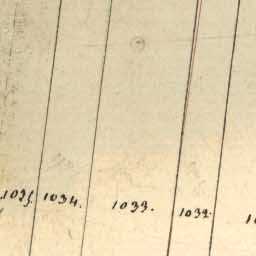 1035. 1034. 1033. 1032.